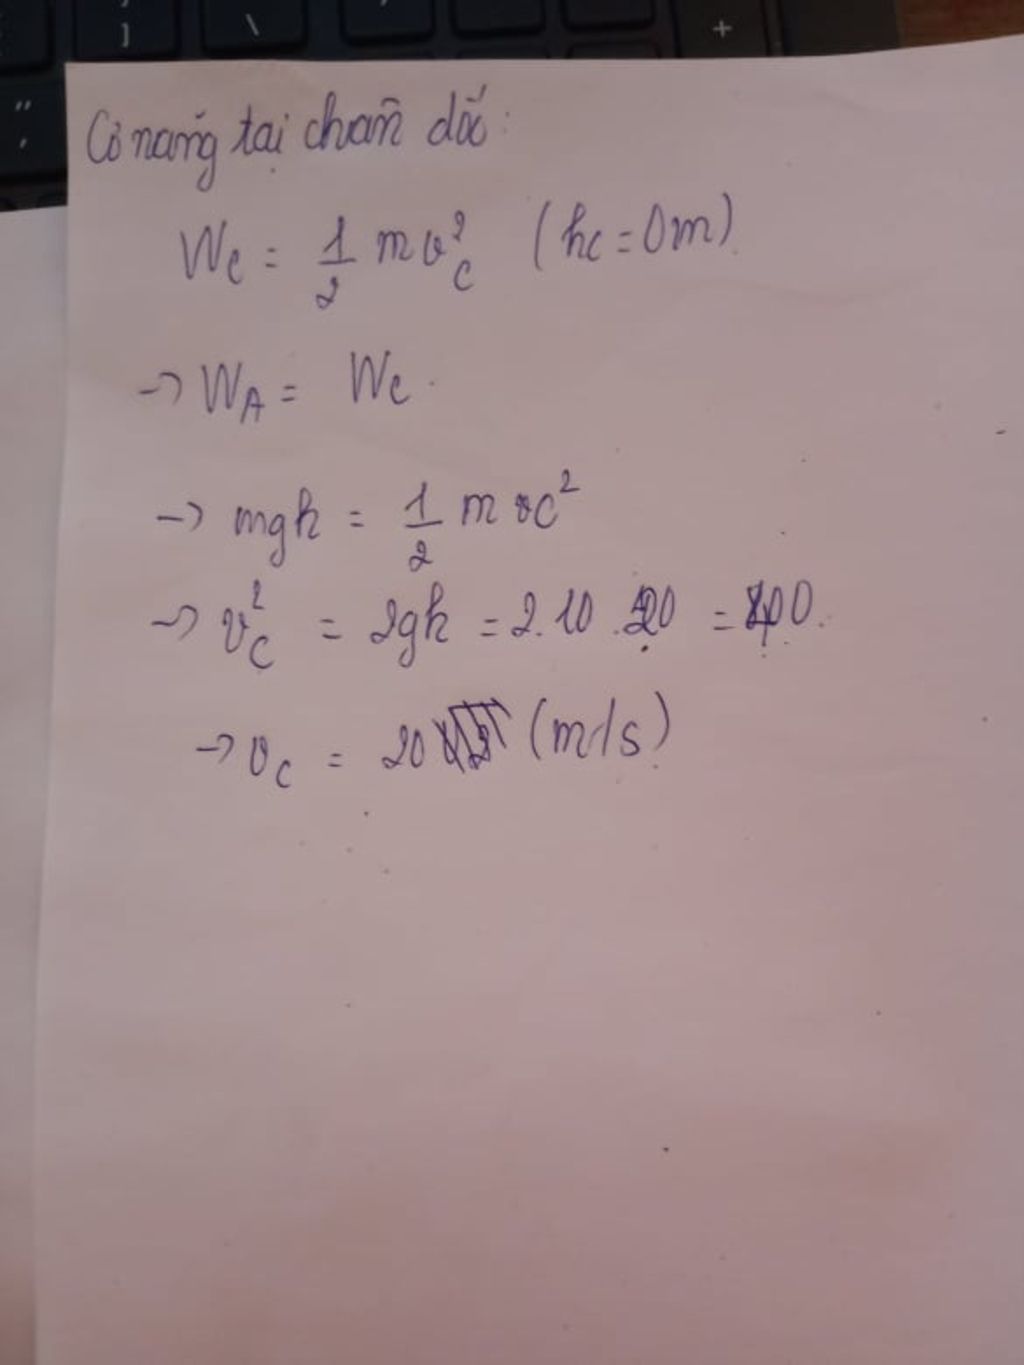 Cơ năng tại chân dốc:
Wc = 1/2 mv²c (hc = 0m)
→ WA = Wc.
→ mgh = 1/2 m vc²
→ v²c = 2gh = 2.10.20 = 400.
→ vc = 20 (m/s)